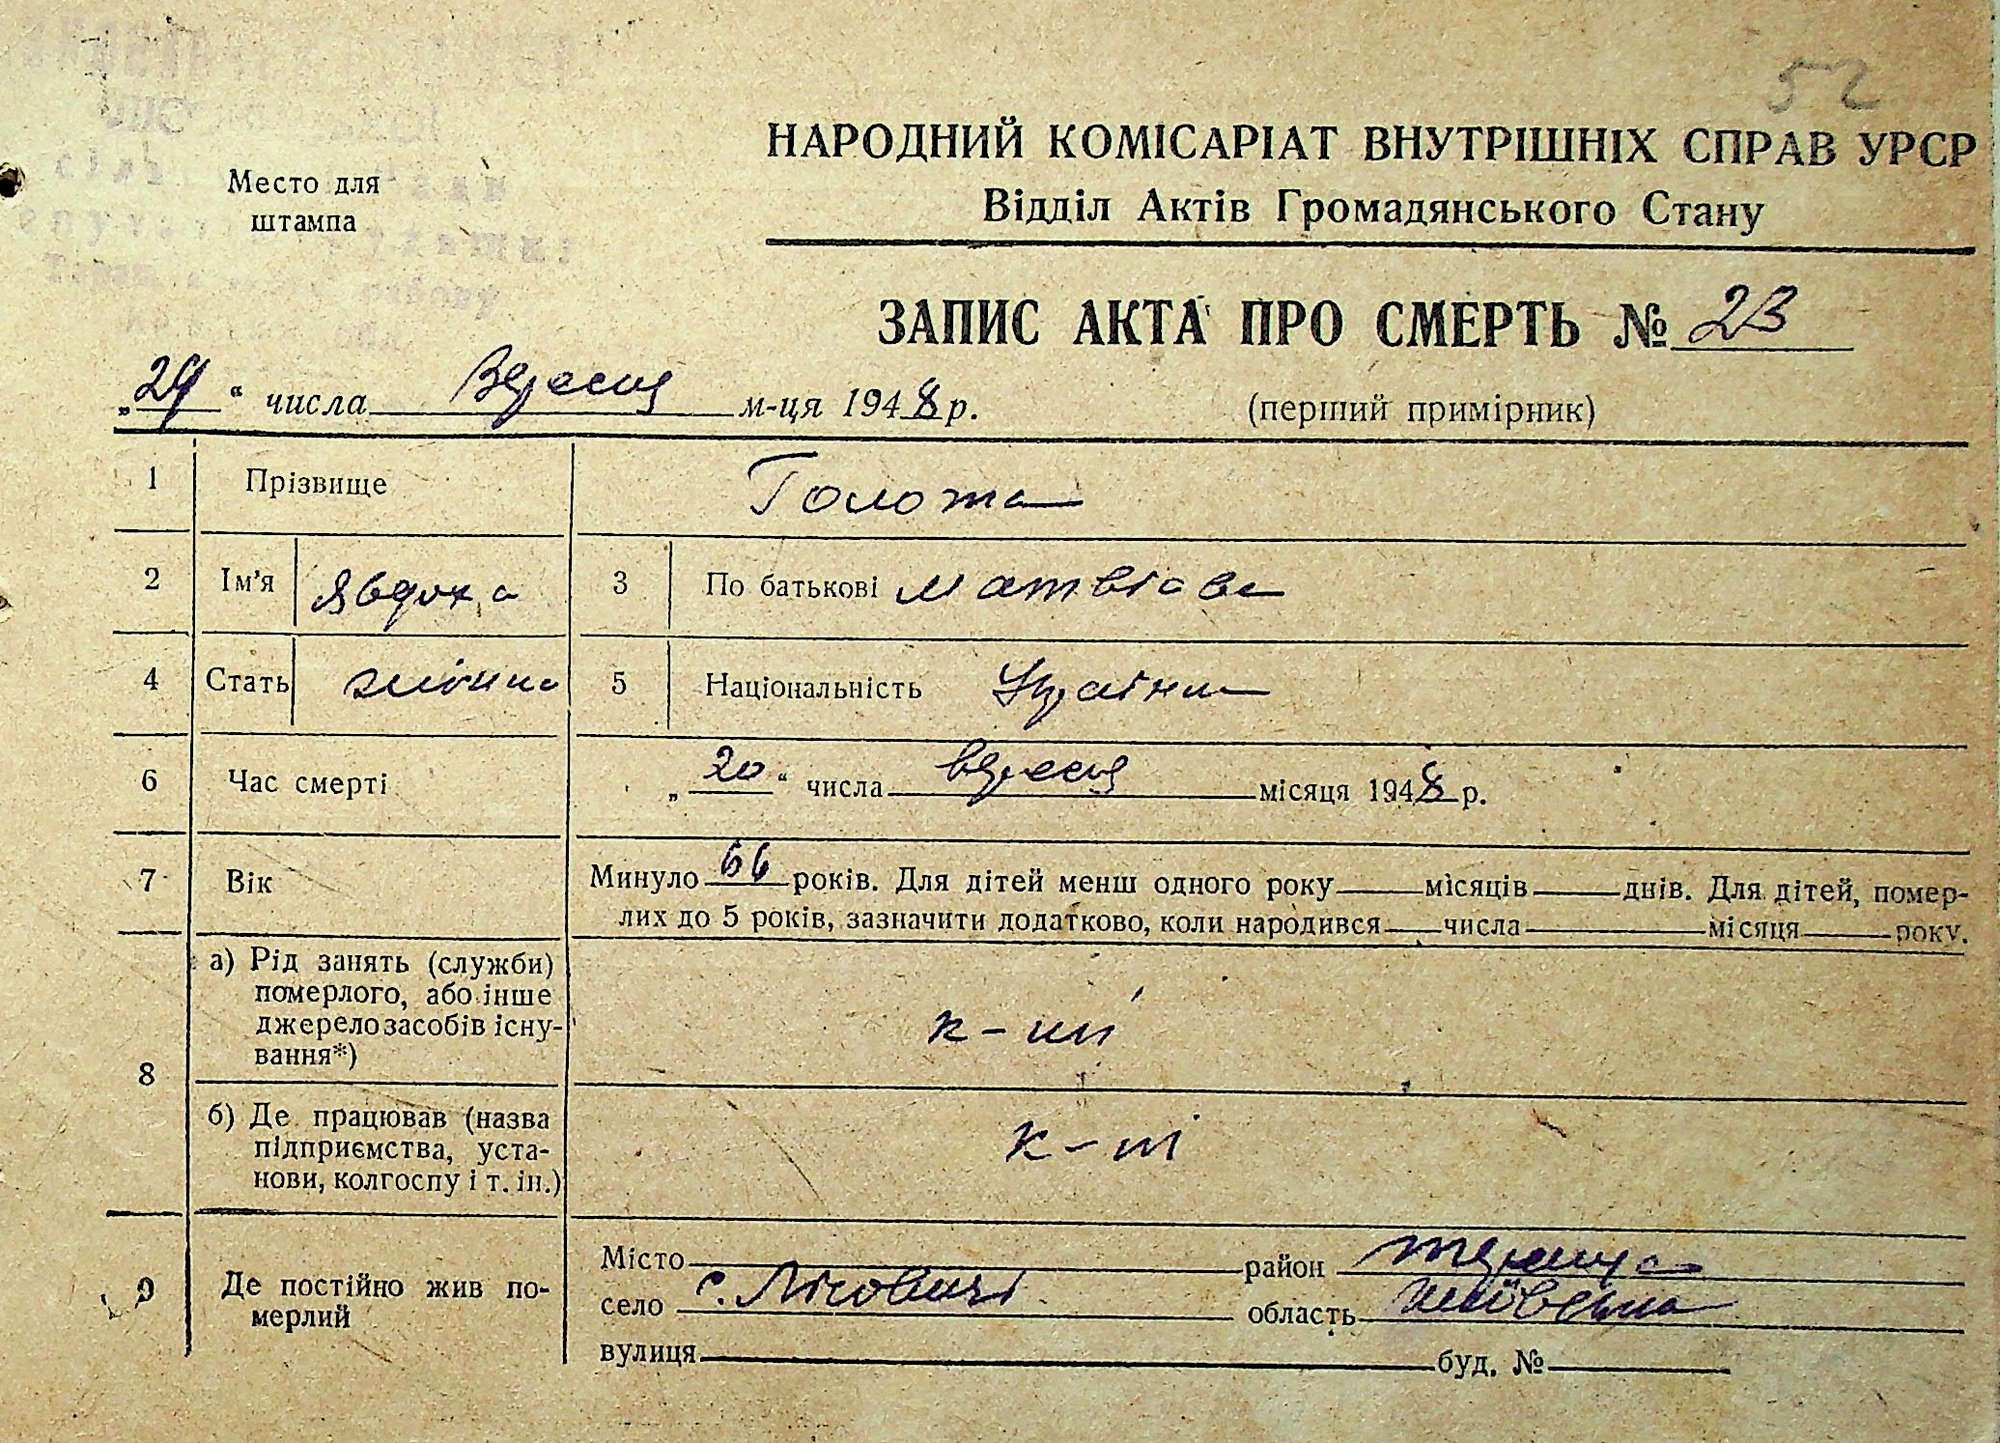 52
НАРОДНИЙ КОМІСАРІАТ ВНУТРІШНІХ СПРАВ УРСР
Відділ Актів Громадянського Стану
Место для
штампа
ЗАПИС АКТА ПРО СМЕРТЬ № 23
„29“ числа Вересня м-ця 1948 р.
(перший примірник)
1 Прізвище Голота
2 Ім'я Явдоха 3 По батькові Матвієва
4 Стать жіноча 5 Національність Україн
6 Час смерті „20“ числа вересня місяця 1948 р.
7 Вік Минуло 66 років. Для дітей менш одного року місяців днів. Для дітей, помер-
лих до 5 років, зазначити додатково, коли народився числа місяця року.
8 а) Рід занять (служби)
померлого, або інше
джерело засобів існу-
вання*)
б) Де працював (назва
підприємства, уста-
нови, колгоспу і т. ін.)
9 Де постійно жив по-
мерлий
Місто район
село с. Лісовичі область Київська
вулиця буд. №